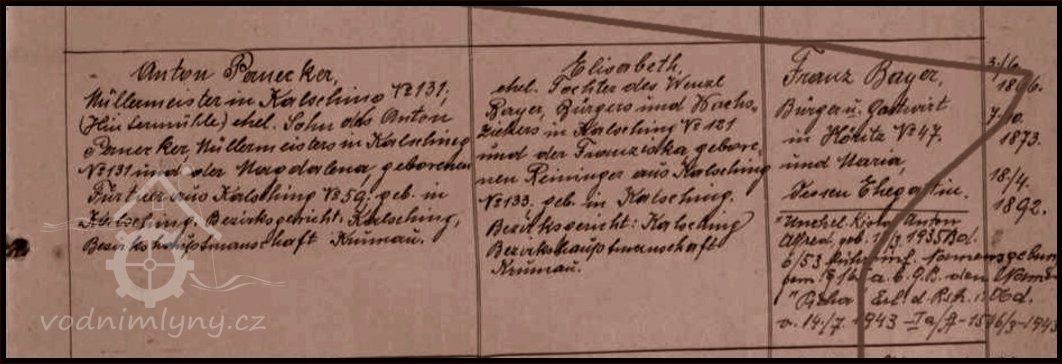 Anton Panecker,
Müllermeister in Kalsching № 131,
(Hintermühle) ehel. Sohn des Anton
Panecker, Müllermeisters in Kalsching
№ 131 und der Magdalena, geborenen
Fürtner aus Kalsching № 59. geb. in
Kalsching. Bezirksgericht: Kalsching,
Bezirkshauptmannschaft Krumau.
Elisabeth,
ehel. Tochter des Wenzl
Bayer, Bürgers und Wachs-
ziehers in Kalsching № 121
und der Franziska gebore-
nen Reininger aus Kalsching
№ 133. geb. in Kalsching.
Bezirksgericht: Kalsching
Bezirkshauptmannschaft
Krumau.
Franz Bayer,
Bürger u. Gastwirt
in Höritz № 47.
und Maria,
dessen Ehegattin.
Unehel. Kind Anton
Alfred, geb. 1935 Bd.
6/53 führt inf. Namensgebung
gem. § 165 a. b. G. B. den Namen
Erl. d. Rsth. i. Od.
v. 14./7. 1943
1873.
18/4.
1892.
vodnimlyny.cz